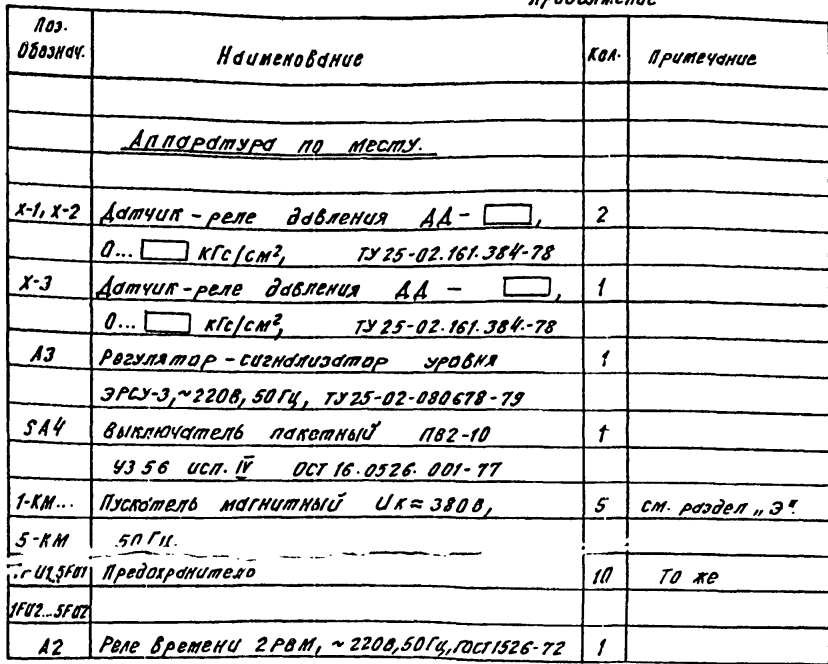 Продолжение
Поз. Обознач. Наименование Кол. Примечание
Аппаратура по месту.
Х-1, Х-2 Датчик-реле давления ДД- , 2
0... кГс/см², ТУ 25-02.161.384-78
Х-3 Датчик-реле давления ДД - , 1
0... кГс/см², ТУ 25-02.161.384-78
А3 Регулятор-сигнализатор уровня 1
ЭРСУ-3, ~220В, 50Гц, ТУ25-02-080678-79
SA4 Выключатель пакетный ПВ2-10 1
У3 56 исп. IV ОСТ 16.0526.001-77
1-КМ... Пускатель магнитный Uк≈380В, 5 см. раздел „Э".
5-КМ 50 Гц.
5FU1 Предохранитель 10 То же
1FU2...5FU2
А2 Реле времени 2РВМ, ~220В, 50Гц, ГОСТ1526-72 1